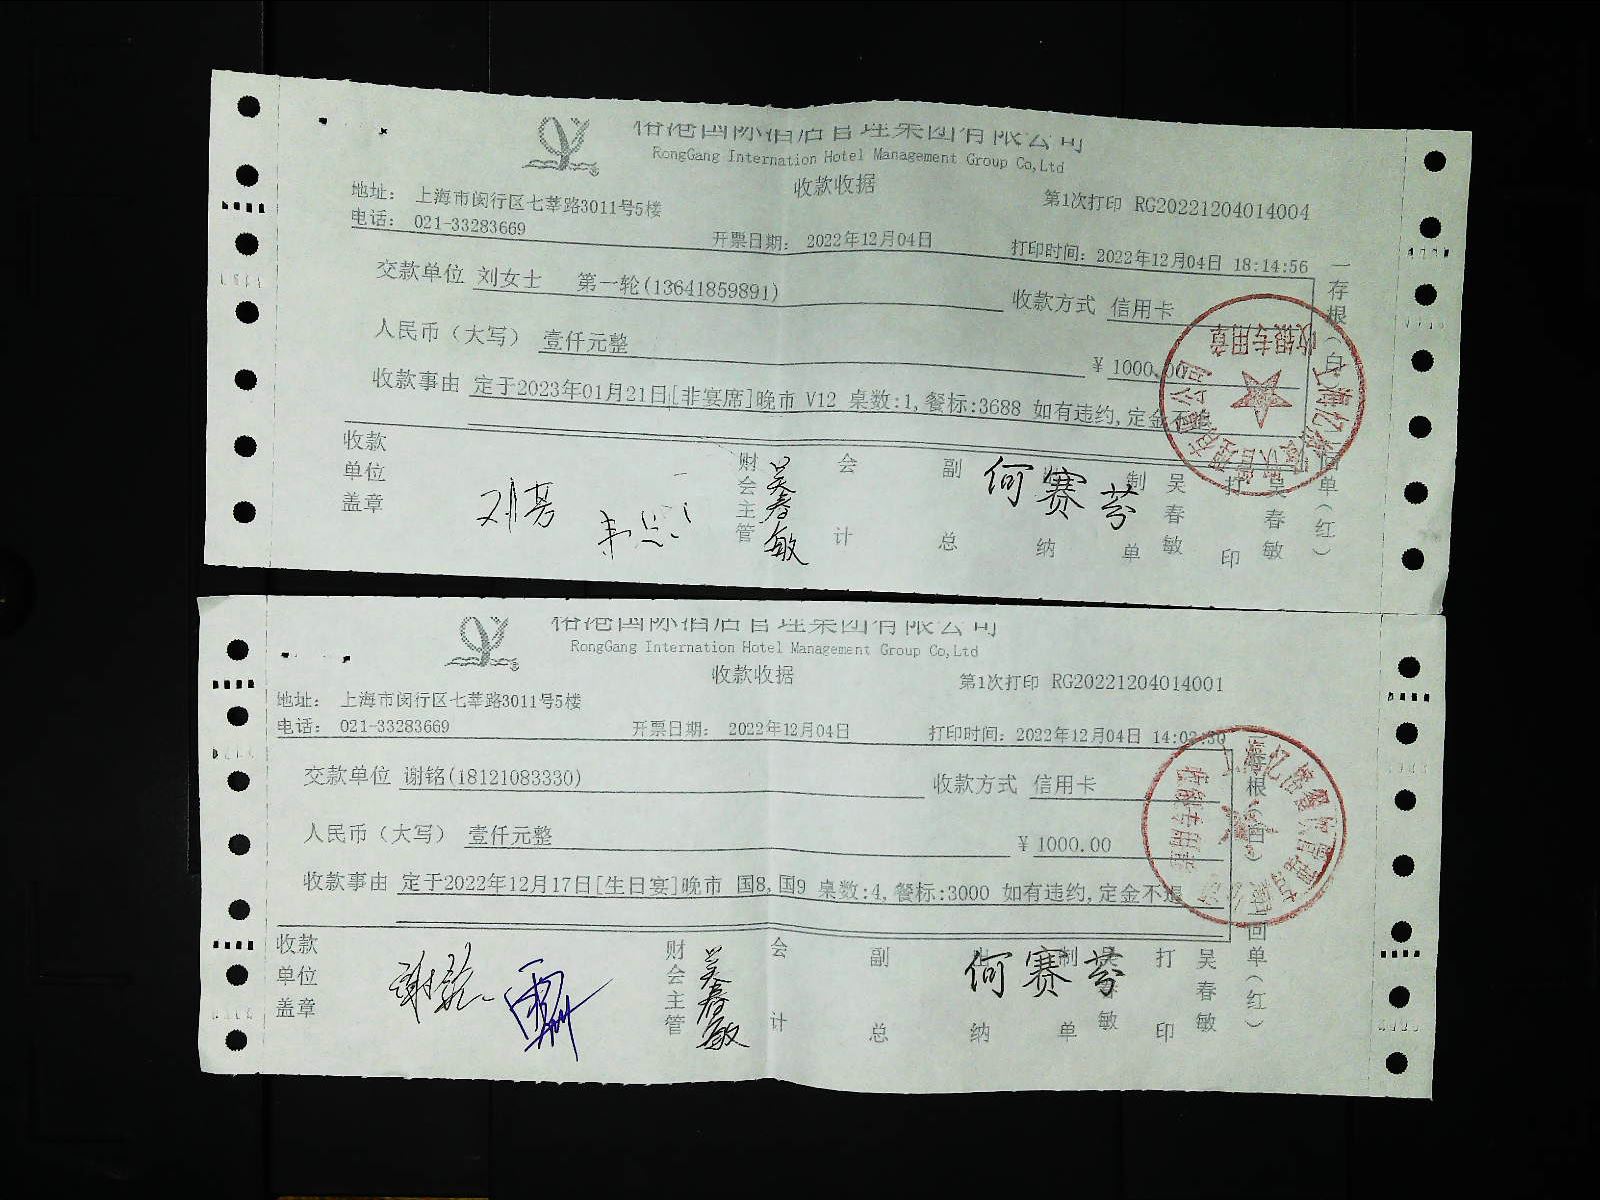 榕港国际酒店管理集团有限公司
RongGang Internation Hotel Management Group Co,Ltd
收款收据
第1次打印 RG20221204014004
地址: 上海市闵行区七莘路3011号5楼
电话: 021-33283669
开票日期: 2022年12月04日
打印时间: 2022年12月04日 18:14:56
交款单位 刘女士 第一轮(13641859891)
收款方式 信用卡
人民币（大写） 壹仟元整
¥ 1000.00
收款事由 定于2023年01月21日[非宴席]晚市 V12 桌数:1,餐标:3688 如有违约,定金不退
一存根（白） 回单（红）
收银专用章
收款单位盖章
刘芳
财会主管 吴春敏
会计
副总
出纳 何赛芬
制单 吴春敏
打印 吴春敏
榕港国际酒店管理集团有限公司
RongGang Internation Hotel Management Group Co,Ltd
收款收据
第1次打印 RG20221204014001
地址: 上海市闵行区七莘路3011号5楼
电话: 021-33283669
开票日期: 2022年12月04日
打印时间: 2022年12月04日 14:02:30
交款单位 谢铭(18121083330)
收款方式 信用卡
人民币（大写） 壹仟元整
¥ 1000.00
收款事由 定于2022年12月17日[生日宴]晚市 国8,国9 桌数:4,餐标:3000 如有违约,定金不退
一存根（白） 回单（红）
收银专用章
收款单位盖章
谢铭
财会主管 吴春敏
会计
副总
出纳 何赛芬
制单 吴春敏
打印 吴春敏